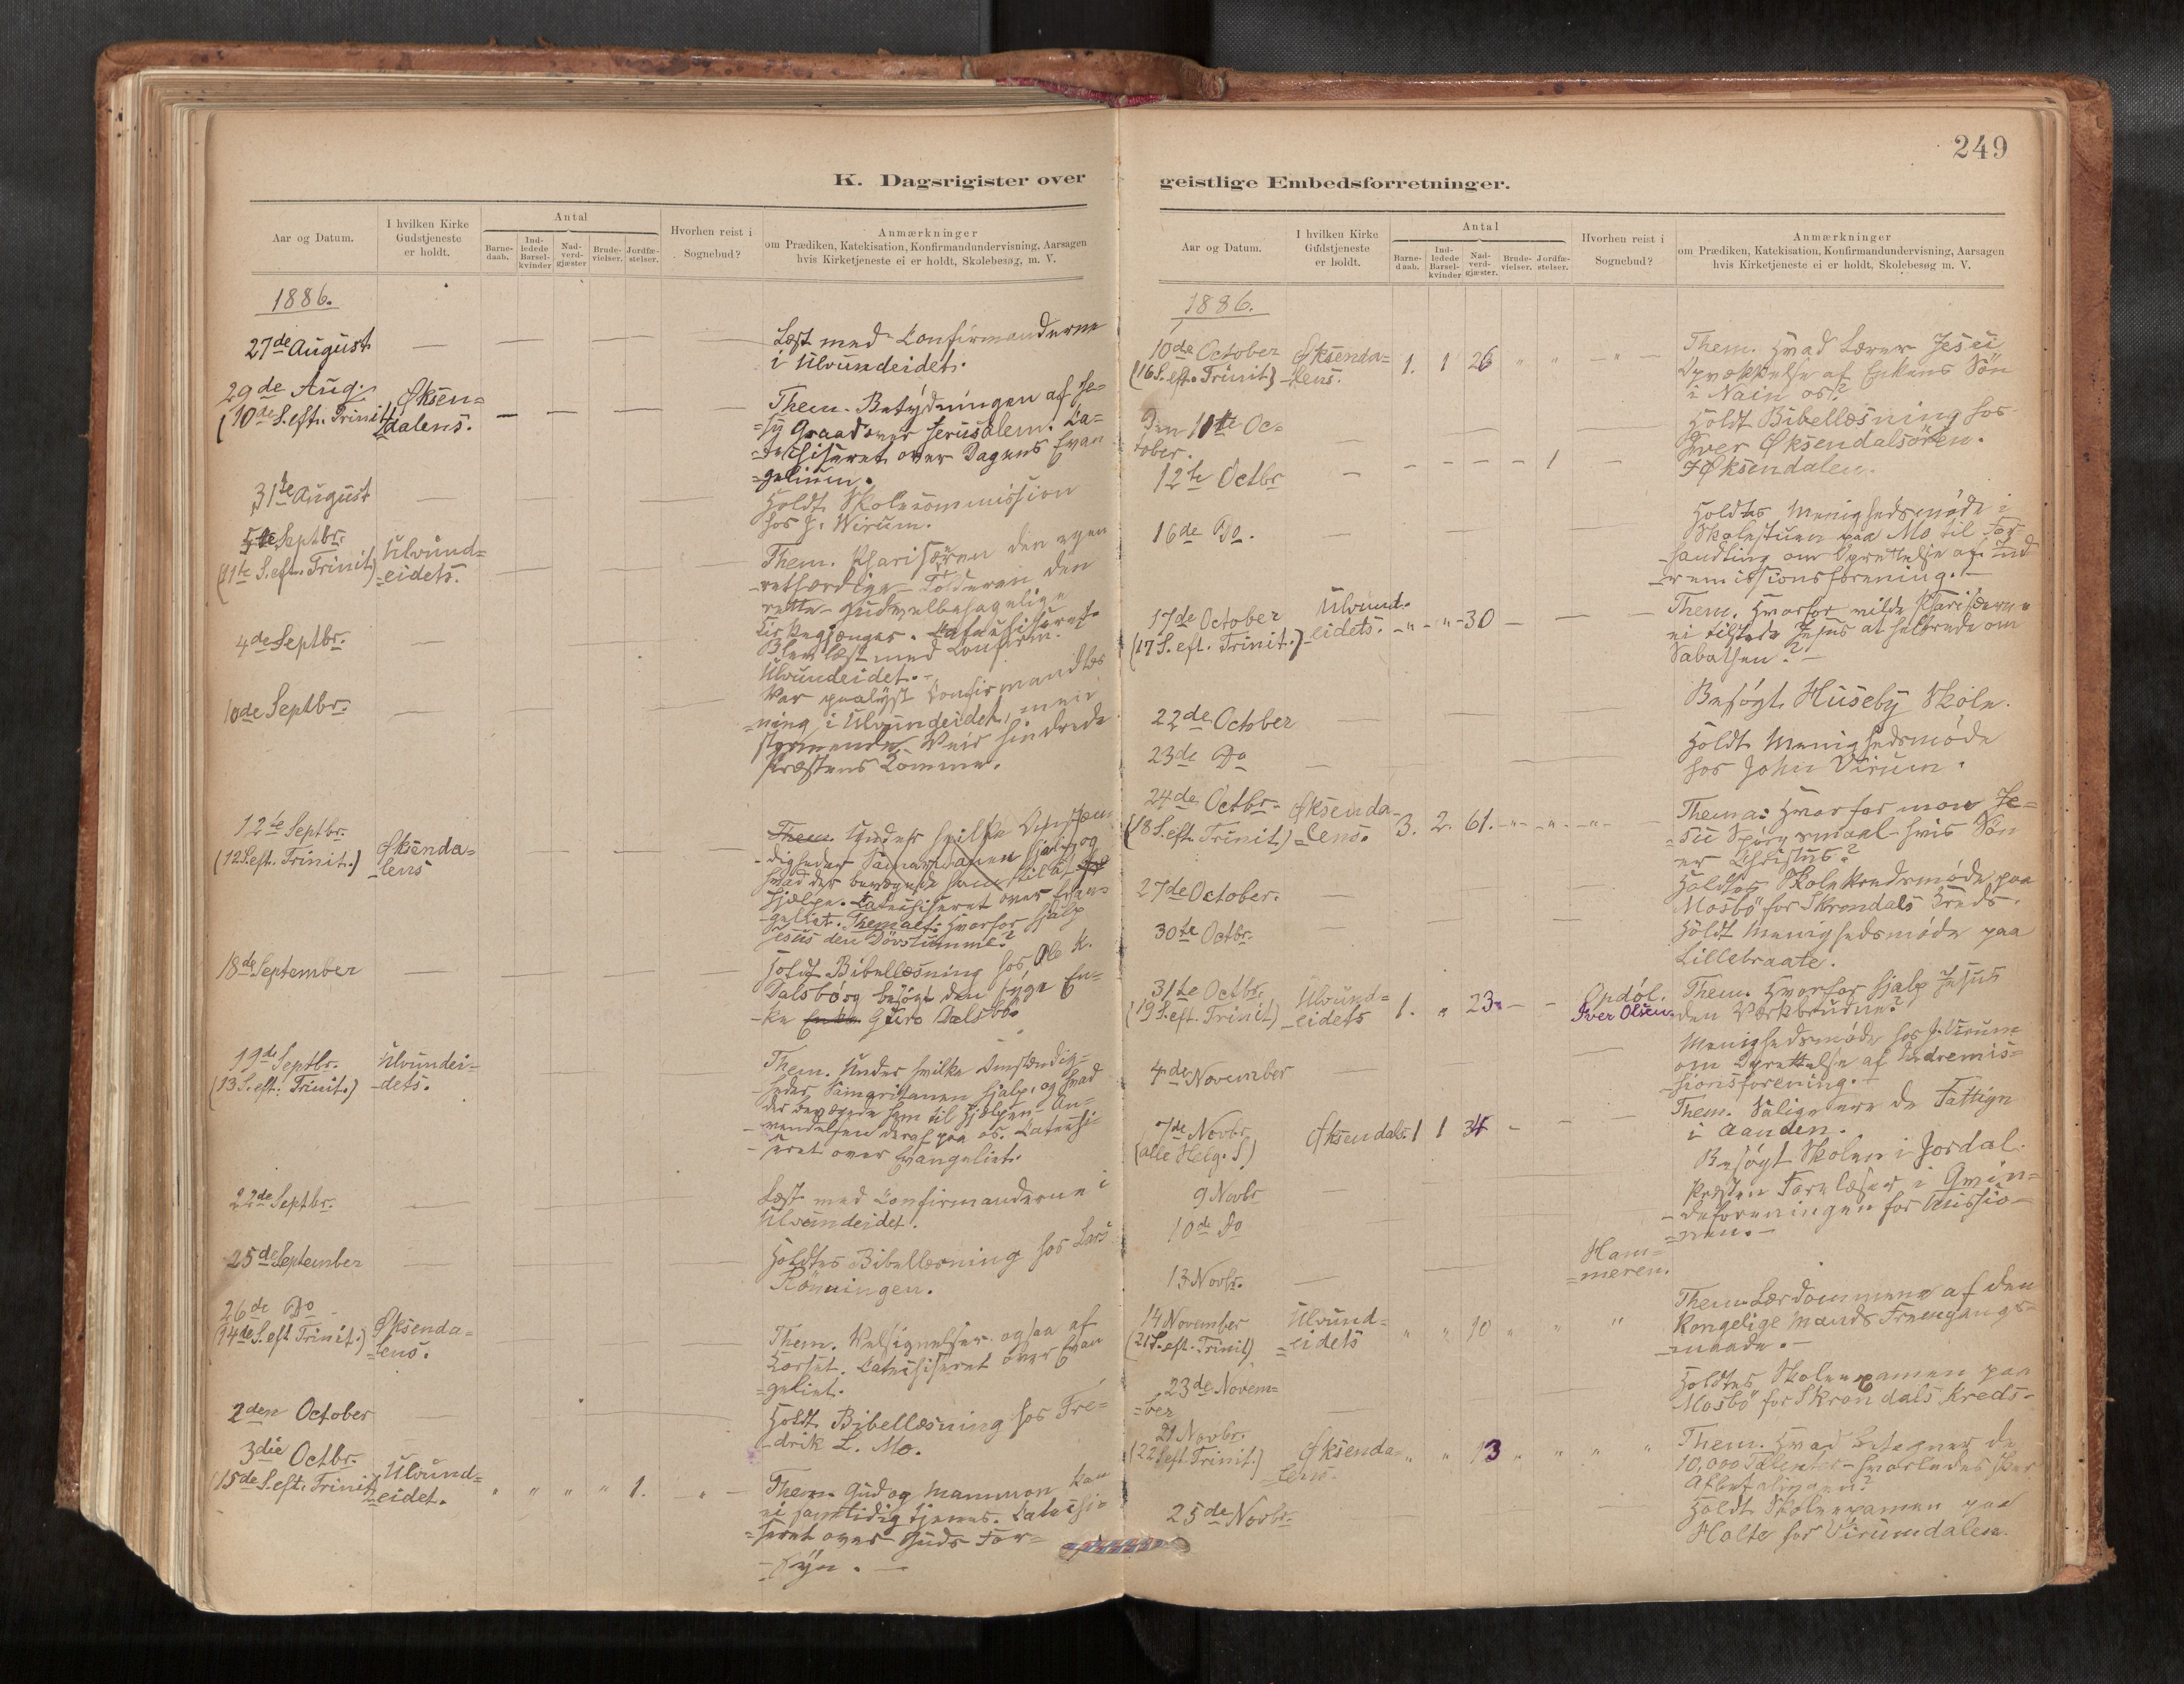 249
K. Dagsrigister over
Aar og Datum.
I hvilken Kirke
Gudstjeneste
er holdt.
Antal
Barne-
daab.
Ind-
ledede
Barsel-
kvinder
Nad-
verd-
gjæster
Brude-
vielser.
Jordfæ-
stelser.
Hvorhen reist i
Sognebud?
Anmærkninger
om Prædiken, Katekisation, Konfirmandundervisning, Aarsagen
hvis Kirketjeneste ei er holdt, Skolebesøg, m. V.
1886.
27de August
Læst med Confirmanderne
i Ulvundeidet.
29de Aug.
(10de S. eft. Trinit)
Øksen=
dalens.
Them. Betydningen af Je=
=su Graad over Jerusalem. Ca=
=techiseret over Dagens Evan
=gelium.
31te August
Holdt Skolecommission
hos J. Virum.
5te Septbr.
(11te S. eft. Trinit)
Ulvund=
=eidets.
Them. Pharisæeren den egen
=retfærdige – Tolderen den
rette – gudvelbehagelige
Kirkegjænger. Catechiseret.
4de Septbr.
Blev læst med Confirm.
Ulvundeidet. –
10de Septbr.
Var paalyst Confirmandlæs
=ning i Ulvundeidet, men
stormende Veir hindrede
Præstens Komme.
12te Septbr.
(12 S. eft. Trinit.)
Øksenda=
=lens
Them. Under hvilke Omstæn
=digheder Samaritanen hjalp og
hvad der bevægede ham til at
hjælpe. Catechiseret over Evan=
=geliet. Themaet: Hvorfor hjalp
Jesus den Døvstumme?
18de September
Holdt Bibellæsning hos Ole K.
Dalsbø og besøgt den syge En=
=ke Enke Guro Dalsbø.
19de Septbr.
(13 S. eft. Trinit.)
Ulvundei=
=dets.
Them. Under hvilke Omstændig=
=heder Samaritanen hjalp, og hvad
der bevægede ham til Hjælpen – An=
=vendelsen deraf paa os. Catechi=
=seret over Evangeliet.
22de Septbr.
Læst med Confirmanderne i
Ulvundeidet.
25de September
Holdtes Bibellæsning hos Lars
Rönningen.
26de Do
(14de S. eft Trinit.)
Øksenda=
=lens.
Them. Velsignelser ogsaa af
Korset. Catechiseret over Evan
=geliet.
2den October
Holdt Bibellæsning hos Fre=
=drik L. Mo.
3die Octbr.
(15de S. eft. Trinit)
Ulvund=
=eidet.
" " " " 1. – " –
Them. Gud og Mammon kan
ei samtidig tjenes. Catechi=
=seret over Guds For=
=syn. –
geistlige Embedsforretninger.
Aar og Datum.
I hvilken Kirke
Gudstjeneste
er holdt.
Antal
Barne-
daab.
Ind-
ledede
Barsel-
kvinder
Nad-
verd-
gjæster.
Brude-
vielser.
Jordfæ-
stelser.
Hvorhen reist i
Sognebud?
Anmærkninger
om Prædiken, Katekisation, Konfirmandundervisning, Aarsagen
hvis Kirketjeneste ei er holdt, Skolebesøg m. V.
1886.
10de October
(16 S. eft. Trinit)
Øksenda=
=lens.
1. 1 26 " " – " –
Them. Hvad Lærer Jesu
Opvækkelse af Enkens Søn
i Nain os?
Den 11te Oc=
tober.
Holdt Bibellæsning hos
Iver Øksendalsören.
12te Octbr
1
I Øksendalen.
16de Do.
Holdtes Menighedsmøde i
Skolestuen paa Mo til For
=handling om Oprettelse af Ind
=remissionsforening. –
17de October
(17 S. eft. Trinit.)
Ulvund=
=eidets.
– " – " – 30 –
Them. Hvorfor vilde Pharisæerne
ei tilstede Jesus at helbrede om
Sabathen? –
22de October
Besøgt Huseby Skole.
23de Do
Holdt Menighedsmøde
hos John Virum.
24de Octbr.
(18 S. eft. Trinit)
Øksenda
=lens.
3. 2. 61. – " – – " – – " –
Thema: Hvorfor mon Je=
=su Spørgsmaal hvis Søn
er Christus?
27de October.
Holdtes Skolekredsmøde paa
Mosbö for Skrondals Kreds.
30te Octbr.
Holdt Menighedsmøde paa
Lillebraate.
31te Octbr.
(19 S. eft. Trinit)
Ulvund=
=eidets
1. " 23. – –
Opdöl.
Iver Olsen.
Them. Hvorfor hjalp Jesus
den Værkbrudne?
4de November
Menighedsmøde hos J. Virum
om Oprettelse af Indremis=
=sionsforening. –
7de Novbr.
(alle Helg. S)
Øksendals. 1 1 34 –
Them. Salige ere de Fattige
i Aanden.
9 Novbr
Besøgt Skolen i Jordal.
10de Do
Præsten Forelæser i Qvin=
=deforeningen for Missio=
=nen. –
13 Novbr.
Ham=
=meren.
14 November
(21 S. eft. Trinit)
Ulvund=
=eidets
" " 10 " " "
Them. Lærdommene af den
Kongelige Mands Fremgangs=
=maade. –
23de Novem=
=ber
Holdtes Skoleexamen paa
Mosbö for Skrondals Kreds –
21 Novbr.
(22 S. eft. Trinit.)
Øksenda=
=lens.
" " 13 " " " "
Them. Hvad betegner de
10,000 Talenter – hvorledes sker
Afbetalingen?
25de Novbr.
Holdt Skoleexamen paa
Holte for Virumdalen.